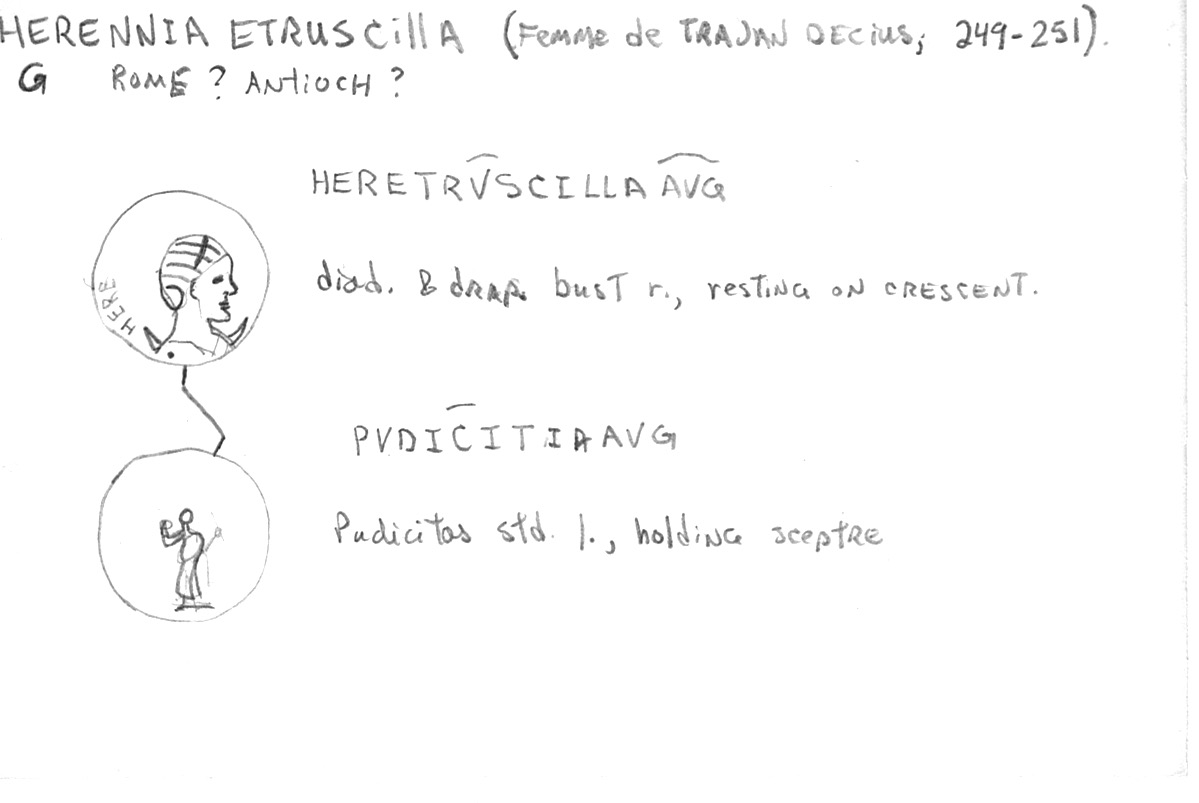 HERENNIA ETRUSCillA (Femme de TRAJAN DECius; 249-251).
G ROME ? ANTiOCH ?
HERETRVSCILLA AVG
HERE
diad. & drap. bust r., resting on crescent.
PVDICITIA AVG
Pudicitas std. l., holding sceptre